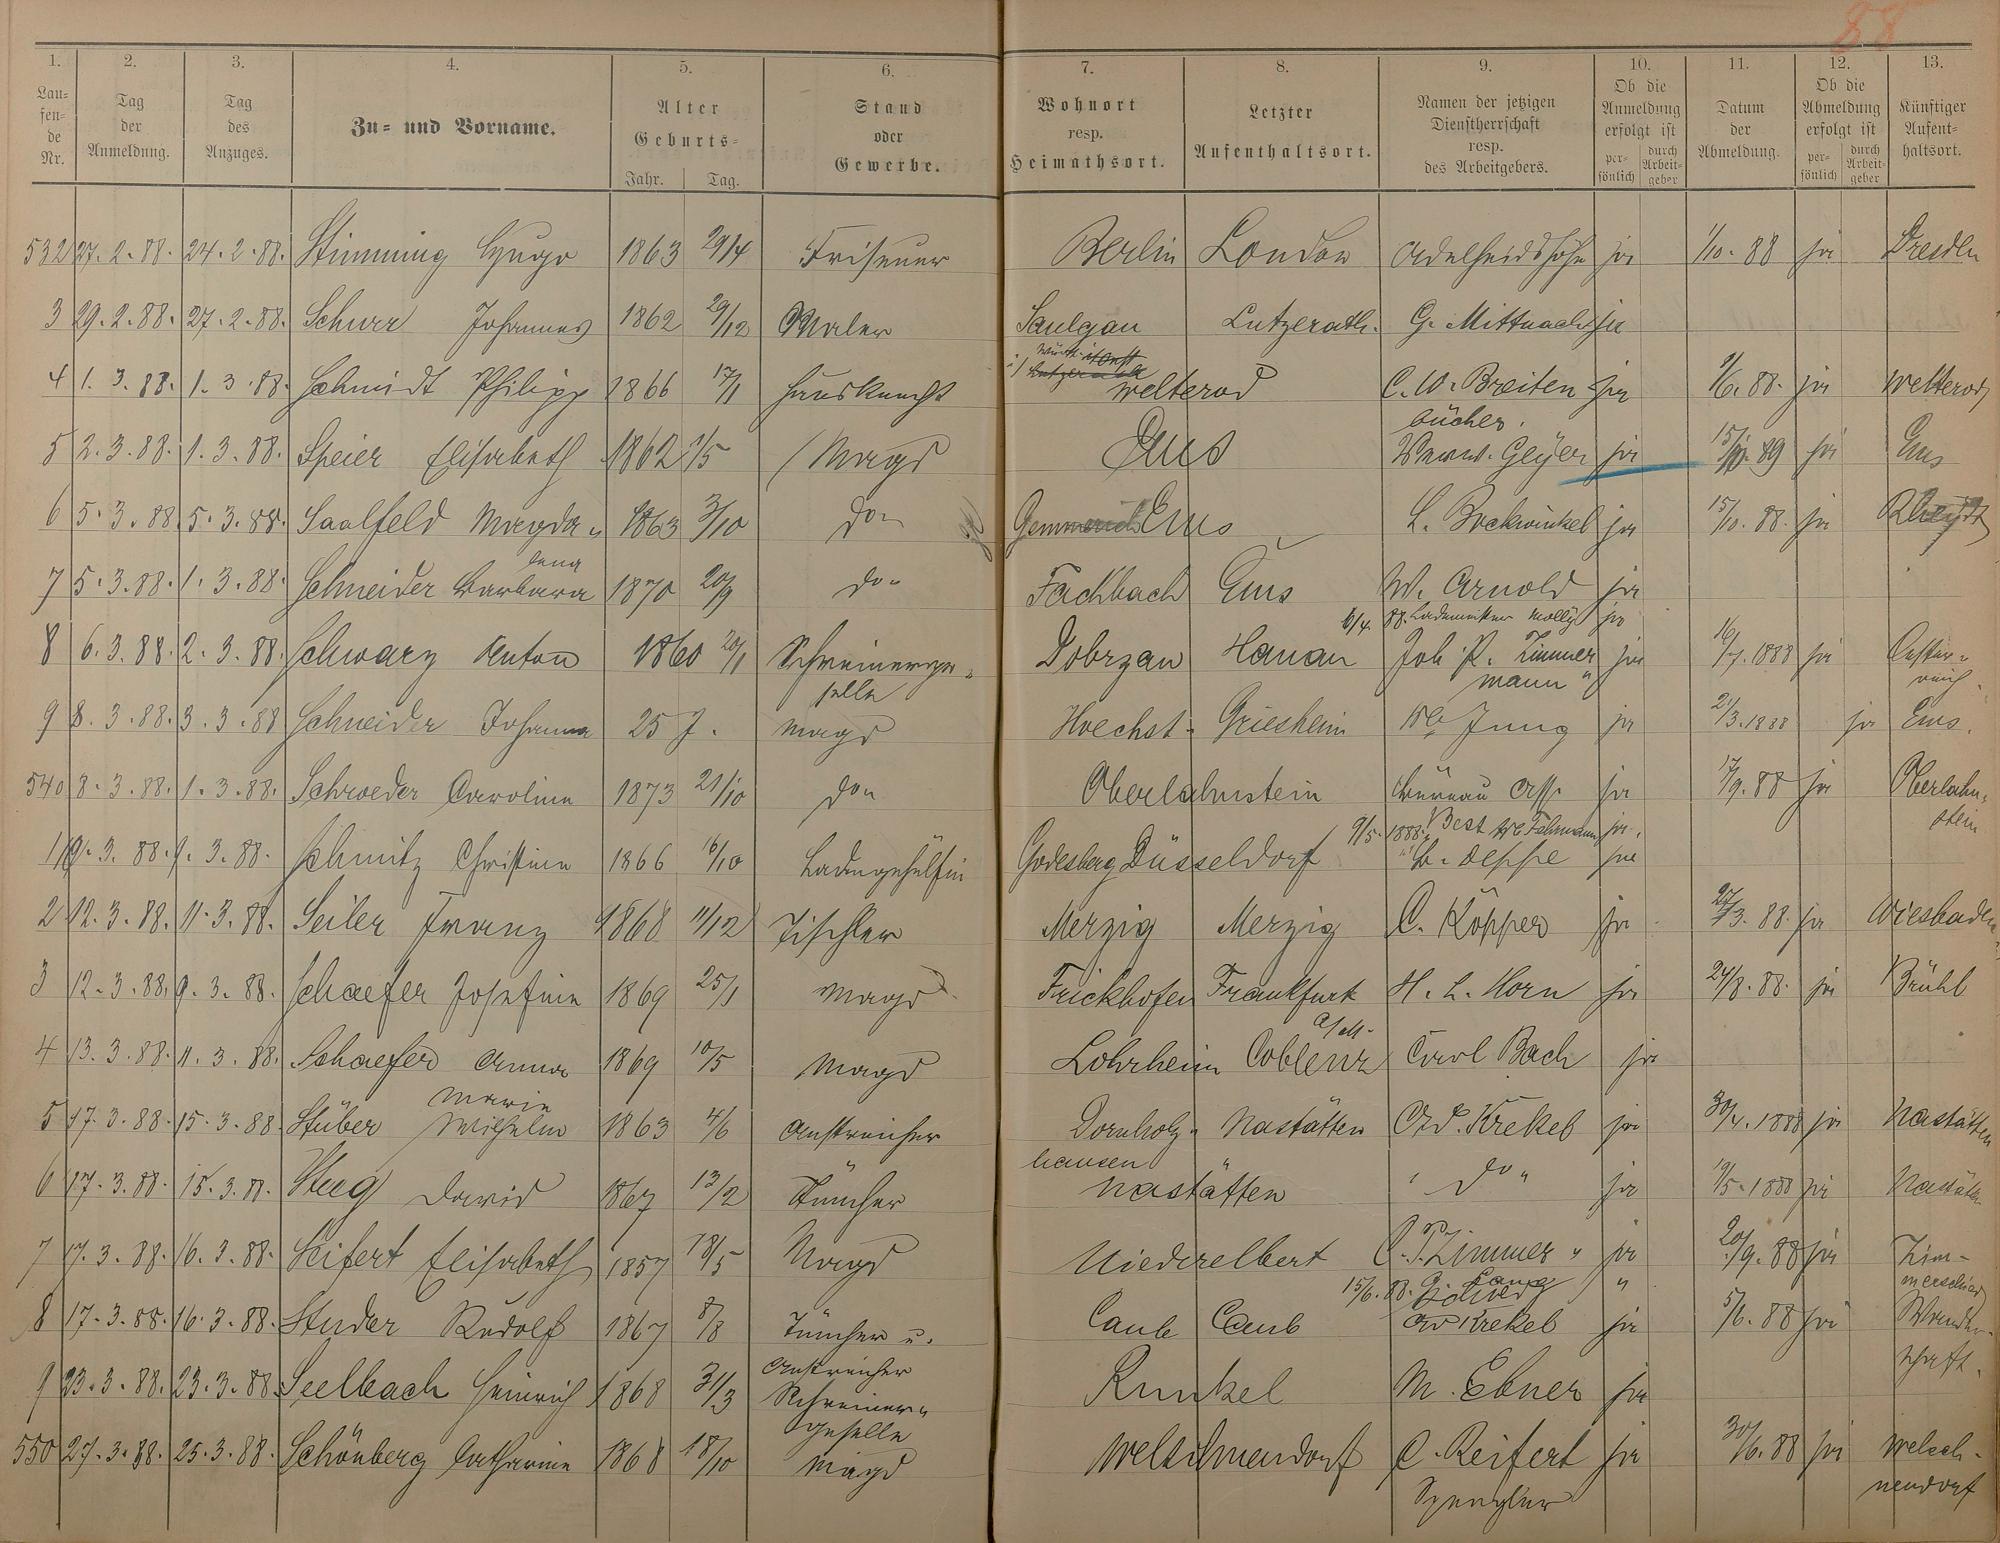 88
1. 2. 3. 4. 5. 6. 7. 8. 9. 10. 11. 12. 13.
Lau=fen=de Nr. | Tag der Anmeldung. | Tag des Anzuges. | Zu= und Vorname. | Alter Geburts= Jahr. Tag. | Stand oder Gewerbe. | Wohnort resp. Heimathsort. | Letzter Aufenthaltsort. | Namen der jetzigen Dienstherrschaft resp. des Arbeitgebers. | Ob die Anmeldung erfolgt ist per=sönlich durch Arbeit=geber | Datum der Abmeldung. | Ob die Abmeldung erfolgt ist per=sönlich durch Arbeit=geber | Künftiger Aufent=haltsort.
532 27.2.88. 24.2.88. Stimming Hugo 1863 29/4 Friseuer Berlin London Adelheidshöhe ja 1/10.88 ja Dresden
3 29.2.88. 27.2.88. Schurr Johannes 1862 29/12 Maler Saulgau Lutzerath. G. Mittnacht ja
4 1.3.88. 1.3.88. Schmidt Philipp 1866 17/1 Hausknecht Welterod C. W. Breiten ja 9/6.88. ja Welterod
bücher.
5 2.3.88. 1.3.88. Speier Elisabeth 1862 1/5 Magd Ems Wwe. Geyer ja 89 ja Ems
6 5.3.88. 5.3.88. Saalfeld Magda= 1863 3/10 do Gemmerich Ems L. Bockwinkel ja 15/10.88. ja Rheydt
lena
7 5.3.88. 1.3.88. Schneider Barbara 1870 20/9 do Fachbach Ems W. Arnold ja
6/4. 88. ja
8 6.3.88. 2.3.88. Schwarz Anton 1860 20/1 Schreinerge= Dobrzan Hanau Joh. P. Zimmer ja 16/7.1888 ja Oester=
selle mann reich
9 8.3.88. 3.3.88 Schneider Johanna 25 J. Magd Hoechst Griesheim Jung ja 21/3.1888 ja Ems.
540 8.3.88. 1.3.88. Schroeder Caroline 1873 21/10 do Oberlahnstein Bureau Ass. ja 17/9.88 ja Oberlahn=
stein
9/5.1888. Best ja.
1 9.3.88. 1.3.88. Schmitz Christine 1866 16/10 Ladengehülfin Godesberg Düsseldorf Deppe ja
2 12.3.88. 11.3.88. Seiler Franz 1868 11/12 Tischler Merzig Merzig C. Köpper ja 27/3.88. ja Wiesbaden
3 12.3.88. 9.3.88. Schaefer Josefine 1869 25/1 Magd Frickhofen Frankfurt H. L. Horn ja 24/8.88. ja Brühl
a/M.
4 13.3.88. 11.3.88. Schaefer Anna 1869 10/5 Magd Lohrheim Coblenz Carl Bach ja
Marie
5 17.3.88. 15.3.88. Stüber Wilhelm 1863 4/6 Anstreicher Dornholz= Nastätten Ad. Krekel ja 30/4.1888 ja Nastätten
hausen
6 17.3.88. 15.3.88. Steeg David 1867 13/2 Tüncher Nastätten do ja 19/5.1888 ja Nastätten
7 17.3.88. 16.3.88. Seifert Elisabeth 1857 18/5 Magd Niederelbert C. P. Zimmer ja 20/9.88 ja Zim=
15/6.88. " merschied
8 17.3.88. 16.3.88. Studer Rudolf 1867 8/8 Tüncher u. Caub Caub Ad Krekel ja 5/6.88 ja Wander=
Anstreicher schaft.
9 23.3.88. 23.3.88. Seelbach Heinrich 1868 31/3 Schreiner= Runkel M. Ebner ja
geselle
550 27.3.88. 25.3.88. Schönberg Catharine 1868 18/10 Magd Welschneudorf C. Reifert ja 30/6.88 ja Welsch=
Spengler neudorf